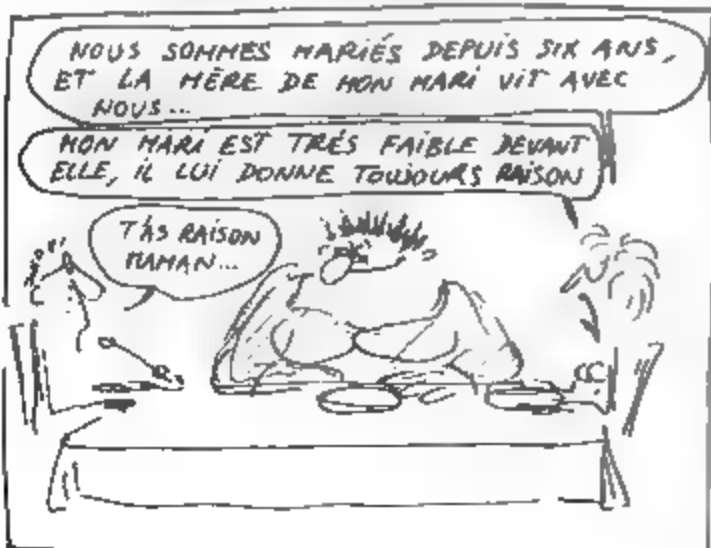 NOUS SOMMES MARIÉS DEPUIS SIX ANS,
ET LA MÈRE DE MON MARI VIT AVEC
NOUS...
MON MARI EST TRÉS FAIBLE DEVANT
ELLE, IL LUI DONNE TOUJOURS RAISON
T'AS RAISON
MAMAN...